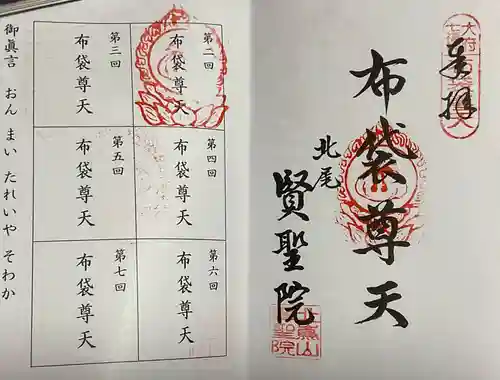 奉拝
布袋尊天
北尾
賢聖院
第二回
布袋尊天
第三回
布袋尊天
第四回
布袋尊天
第五回
布袋尊天
第六回
布袋尊天
第七回
布袋尊天
御眞言 おん まい たれいや そわか